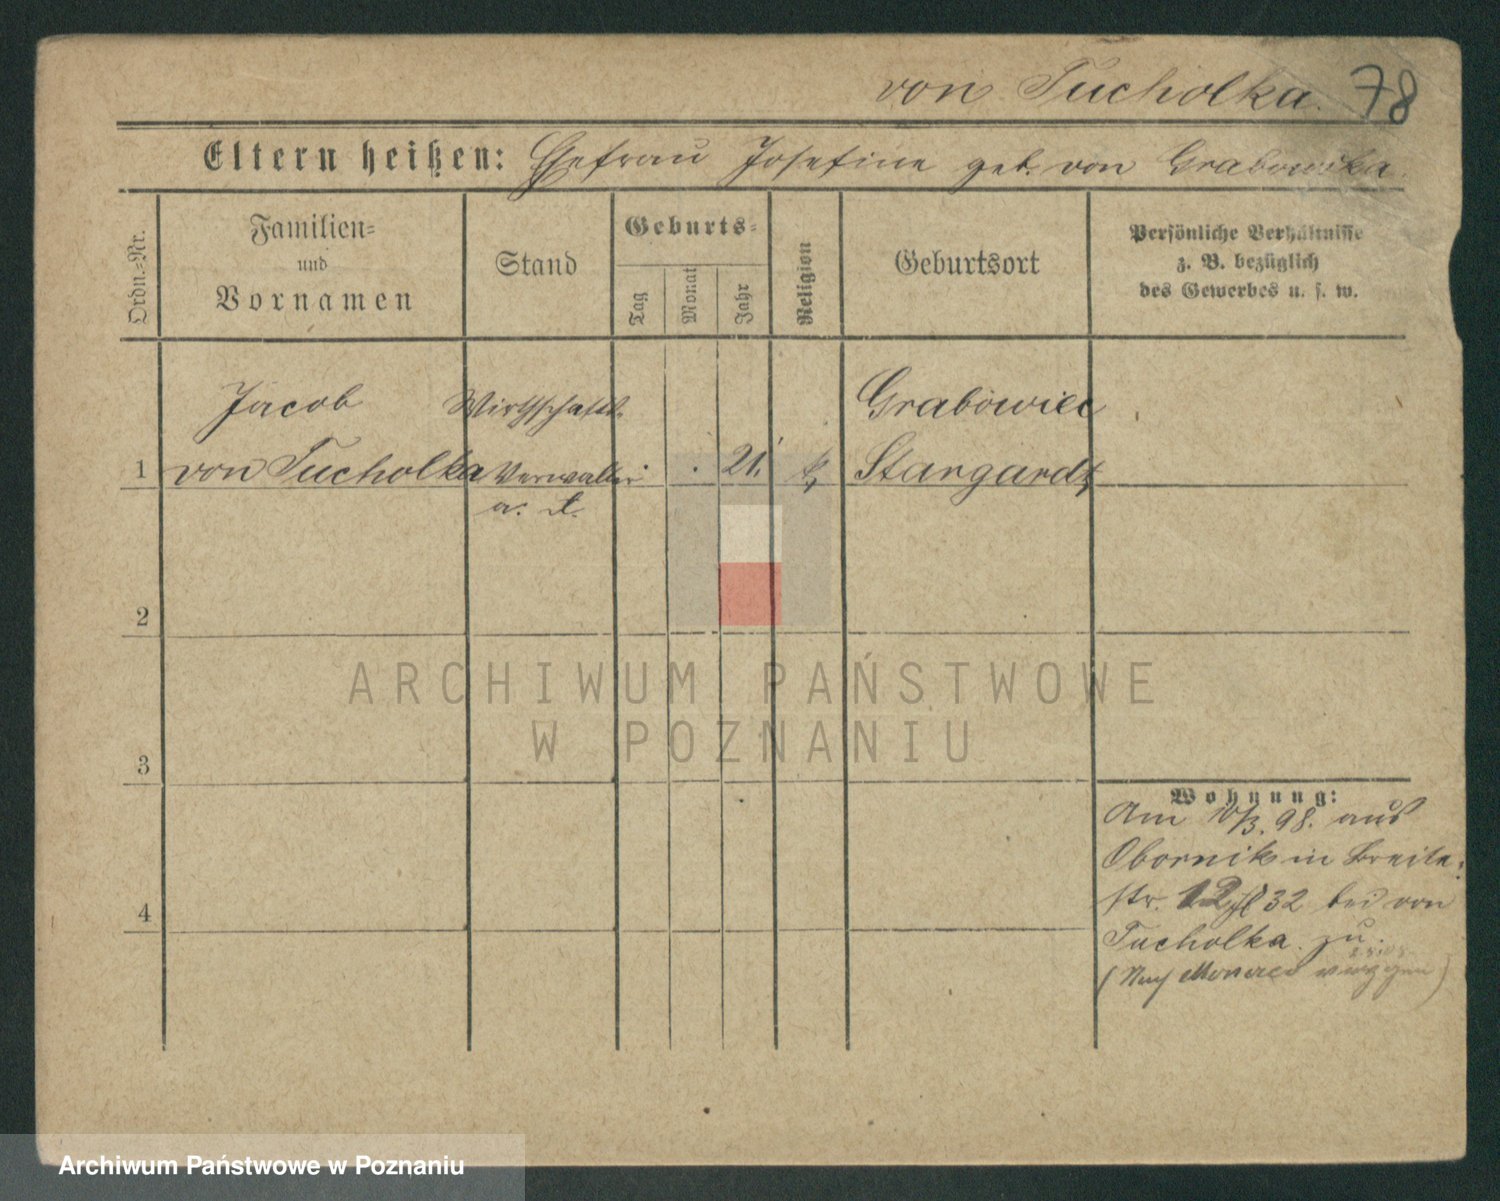 von Tucholka. 78
Eltern heißen: Ehefrau Josefine geb. von Grabowska.
Ordn.=Nr.
Familien=
und
Vornamen
Stand
Geburts=
Tag
Monat
Jahr
Religion
Geburtsort
Persönliche Verhältnisse
z. B. bezüglich
des Gewerbes u. s. w.
Jacob
von Tucholka
Wirthschafts.
Verwalter
a. d.
21.
k.
Grabowiec
Stargardt
1
2
3
4
Wohnung:
Am 10/3. 98. aus
Obornik in Breite=
str. 12 32 bei von
Tucholka. zu.
(Nach verzogen)
ARCHIWUM PAŃSTWOWE
W POZNANIU
Archiwum Państwowe w Poznaniu